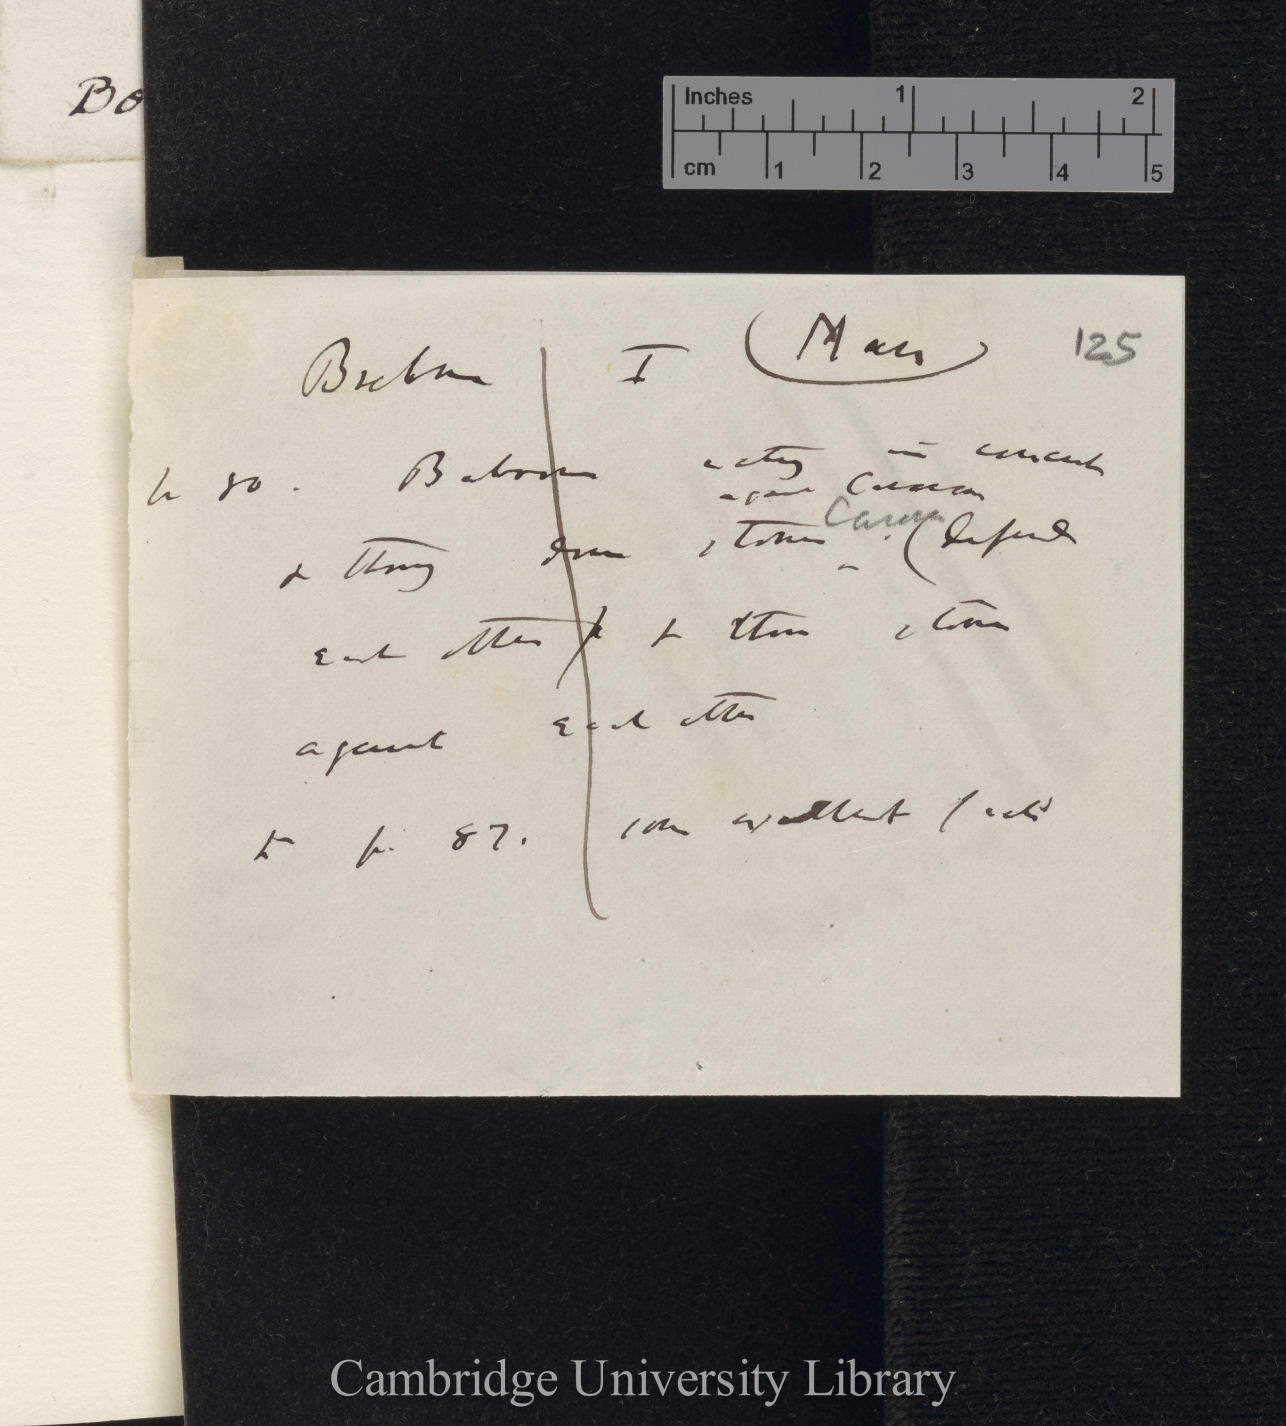 Bo
Inches 1 2
cm 1 2 3 4 5
I (Man) 125
p 80. Baboons acting in concert
against Caravan
& throwing down stones. (defend
each other & & throw stones
against each other
to p. 87. some excellent facts
Cambridge University Library